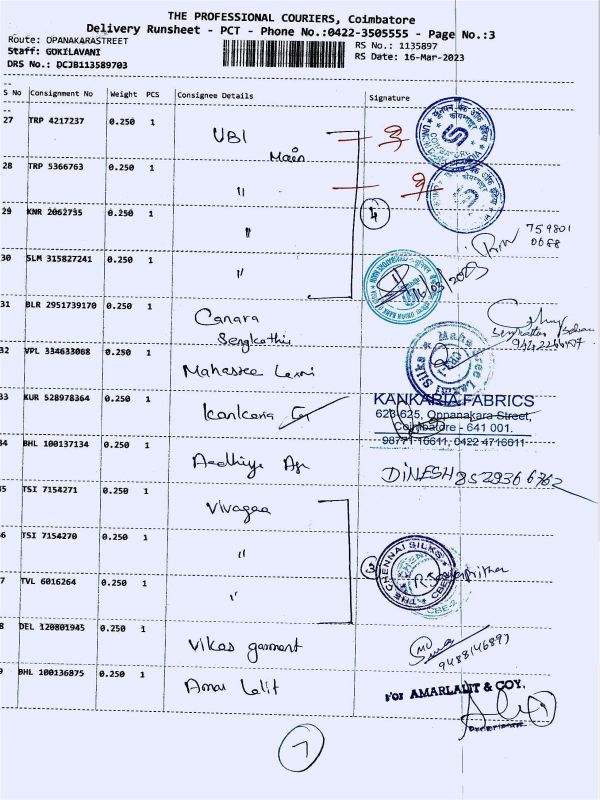 THE PROFESSIONAL COURIERS, Coimbatore
Delivery Runsheet - PCT - Phone No.:0422-3505555 - Page No.:3
Route: OPANAKARASTREET
Staff: GOKILAVANI
DRS No.: DCJB113589703
RS No.: 1135897
RS Date: 16-Mar-2023
S No Consignment No Weight PCS Consignee Details Signature
27 TRP 4217237 0.250 1 UBI Main
28 TRP 5366763 0.250 1 "
29 KNR 2062735 0.250 1 " 4
759801
0688
30 SLM 315827241 0.250 1 " 16/03/2023
31 BLR 2951739170 0.250 1 Canara
32 VPL 334633068 0.250 1 Mahasree Laxmi
33 KUR 528978364 0.250 1 Kankaria
KANKARIA FABRICS
623-625, Oppanakara Street,
Coimbatore - 641 001.
98771 16611, 0422 4716611
34 BHL 100137134 0.250 1 DINESH 8529366762
TSI 7154271 0.250 1 Vivagaa
TSI 7154270 0.250 1 "
THE CHENNAI SILKS
CBE-2
TVL 6016264 0.250 1 " 3
DEL 120801945 0.250 1 Vikas garment 9488146897
BHL 100136875 0.250 1 Amar Lalit
For AMARLALIT & COY.
7